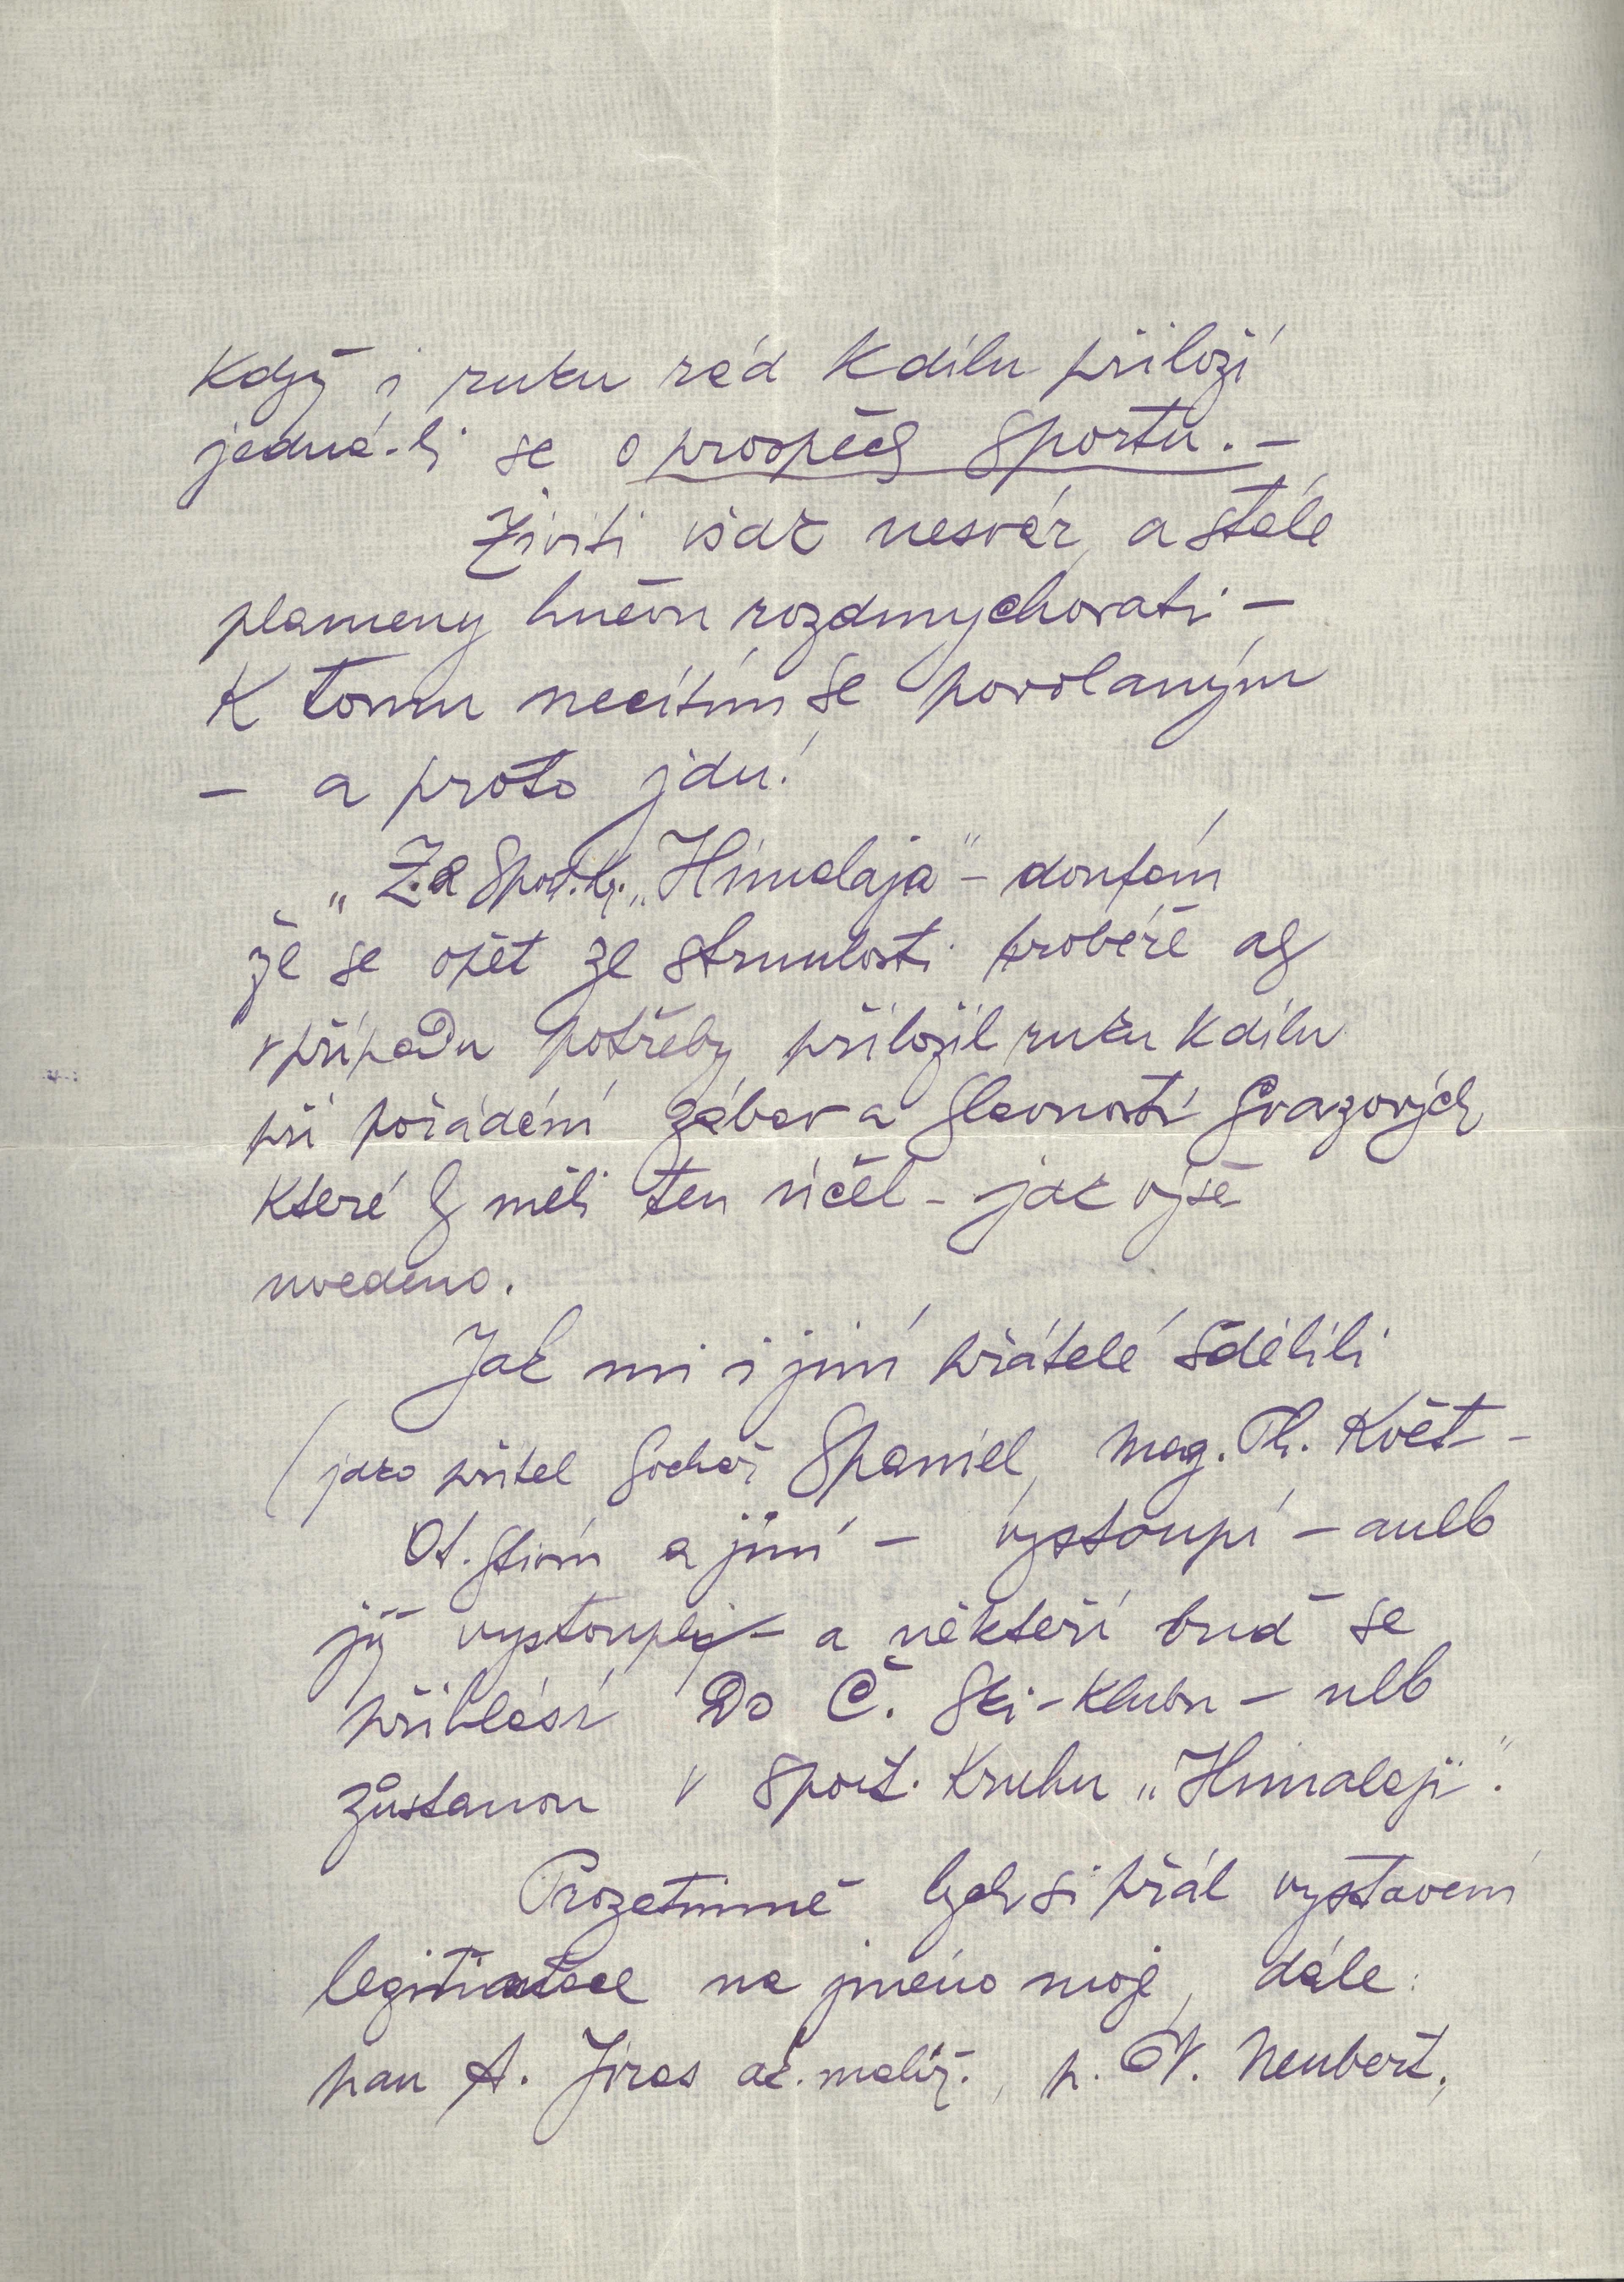 když i ruku rád k dílu přiloží
jedná-li se o prospěch sportu. –
Živiti však nesvár, a stále
plameny hněvu rozdmychovati –
K tomu necítím se povolaným
– a proto jdu!
„Za Sport. kr. „Himalaja" – doufám
že se opět ze strnulosti probéře a bych
v případu potřeby přiložil ruku k dílu
při pořádání zábav a slavností svazových
které by měli ten účel – jak výše
uvedeno.
Jak mi i jiní přátelé sdělili
(jako přítel sochař Španiel, Mag. Ph. Květ –
Ot. a jiní – vystoupí – aneb
již vystoupli – a někteří buď se
přihlásí Do Č. Ski-klubu – neb
zůstanou v sport. kruhu „Himalaji".
Prozatimně bych si přál vystavení
legitimace na jméno moje, dále:
pan A. Jiras ak. malíř., p. V. Neubert,